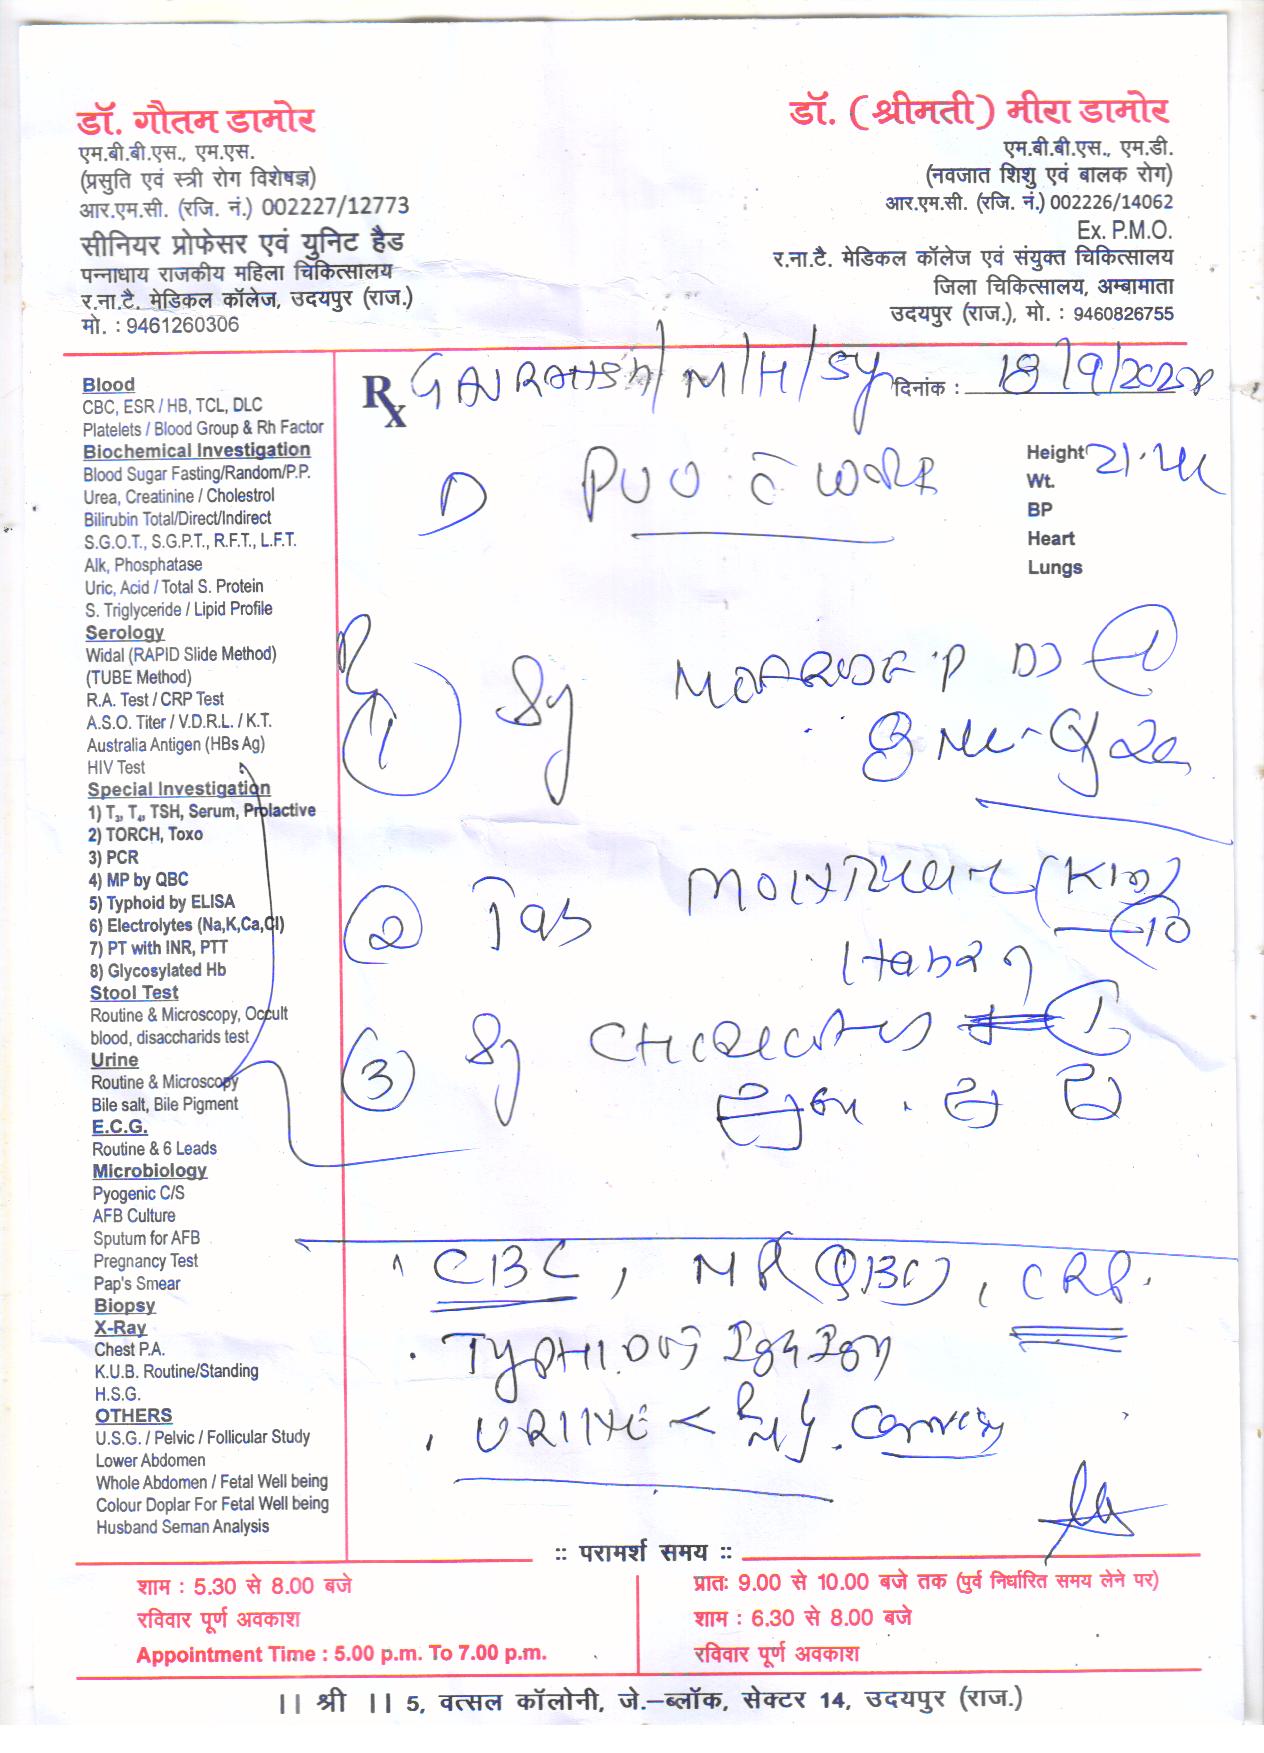 डॉ. गौतम डामोर
एम.बी.बी.एस., एम.एस.
(प्रसुति एवं स्त्री रोग विशेषज्ञ)
आर.एम.सी. (रजि. नं.) 002227/12773
सीनियर प्रोफेसर एवं युनिट हैड
पन्नाधाय राजकीय महिला चिकित्सालय
र.ना.टै. मेडिकल कॉलेज, उदयपुर (राज.)
मो. : 9461260306
डॉ. (श्रीमती) मीरा डामोर
एम.बी.बी.एस., एम.डी.
(नवजात शिशु एवं बालक रोग)
आर.एम.सी. (रजि. नं.) 002226/14062
Ex. P.M.O.
र.ना.टै. मेडिकल कॉलेज एवं संयुक्त चिकित्सालय
जिला चिकित्सालय, अम्बामाता
उदयपुर (राज.), मो. : 9460826755
Blood
CBC, ESR / HB, TCL, DLC
Platelets / Blood Group & Rh Factor
Biochemical Investigation
Blood Sugar Fasting/Random/P.P.
Urea, Creatinine / Cholestrol
Bilirubin Total/Direct/Indirect
S.G.O.T., S.G.P.T., R.F.T., L.F.T.
Alk, Phosphatase
Uric, Acid / Total S. Protein
S. Triglyceride / Lipid Profile
Serology
Widal (RAPID Slide Method)
(TUBE Method)
R.A. Test / CRP Test
A.S.O. Titer / V.D.R.L. / K.T.
Australia Antigen (HBs Ag)
HIV Test
Special Investigation
1) T₃, T₄, TSH, Serum, Prolactive
2) TORCH, Toxo
3) PCR
4) MP by QBC
5) Typhoid by ELISA
6) Electrolytes (Na,K,Ca,Cl)
7) PT with INR, PTT
8) Glycosylated Hb
Stool Test
Routine & Microscopy, Occult
blood, disaccharids test
Urine
Routine & Microscopy
Bile salt, Bile Pigment
E.C.G.
Routine & 6 Leads
Microbiology
Pyogenic C/S
AFB Culture
Sputum for AFB
Pregnancy Test
Pap's Smear
Biopsy
X-Ray
Chest P.A.
K.U.B. Routine/Standing
H.S.G.
OTHERS
U.S.G. / Pelvic / Follicular Study
Lower Abdomen
Whole Abdomen / Fetal Well being
Colour Doplar For Fetal Well being
Husband Seman Analysis
Rx /M/H/5y दिनांक : 18/9/
D PUO
Height
Wt.
BP
Heart
Lungs
1 Sy DS 1
2 Tab 10
3 Sy 1
CBC, MP (QBC), CRP.
URINE
:: परामर्श समय ::
शाम : 5.30 से 8.00 बजे
रविवार पूर्ण अवकाश
Appointment Time : 5.00 p.m. To 7.00 p.m.
प्रातः 9.00 से 10.00 बजे तक (पुर्व निर्धारित समय लेने पर)
शाम : 6.30 से 8.00 बजे
रविवार पूर्ण अवकाश
|| श्री || 5, वत्सल कॉलोनी, जे.–ब्लॉक, सेक्टर 14, उदयपुर (राज.)